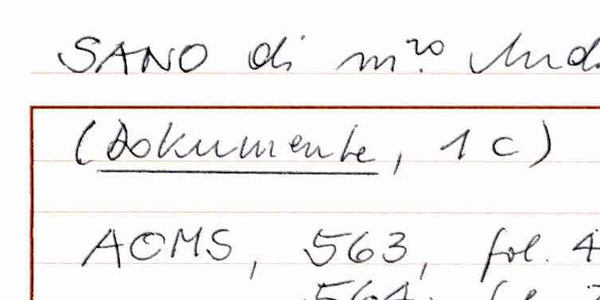 SANO di m.ro And
(Dokumente, 1 c)
AOMS, 563, fol. 4
564,